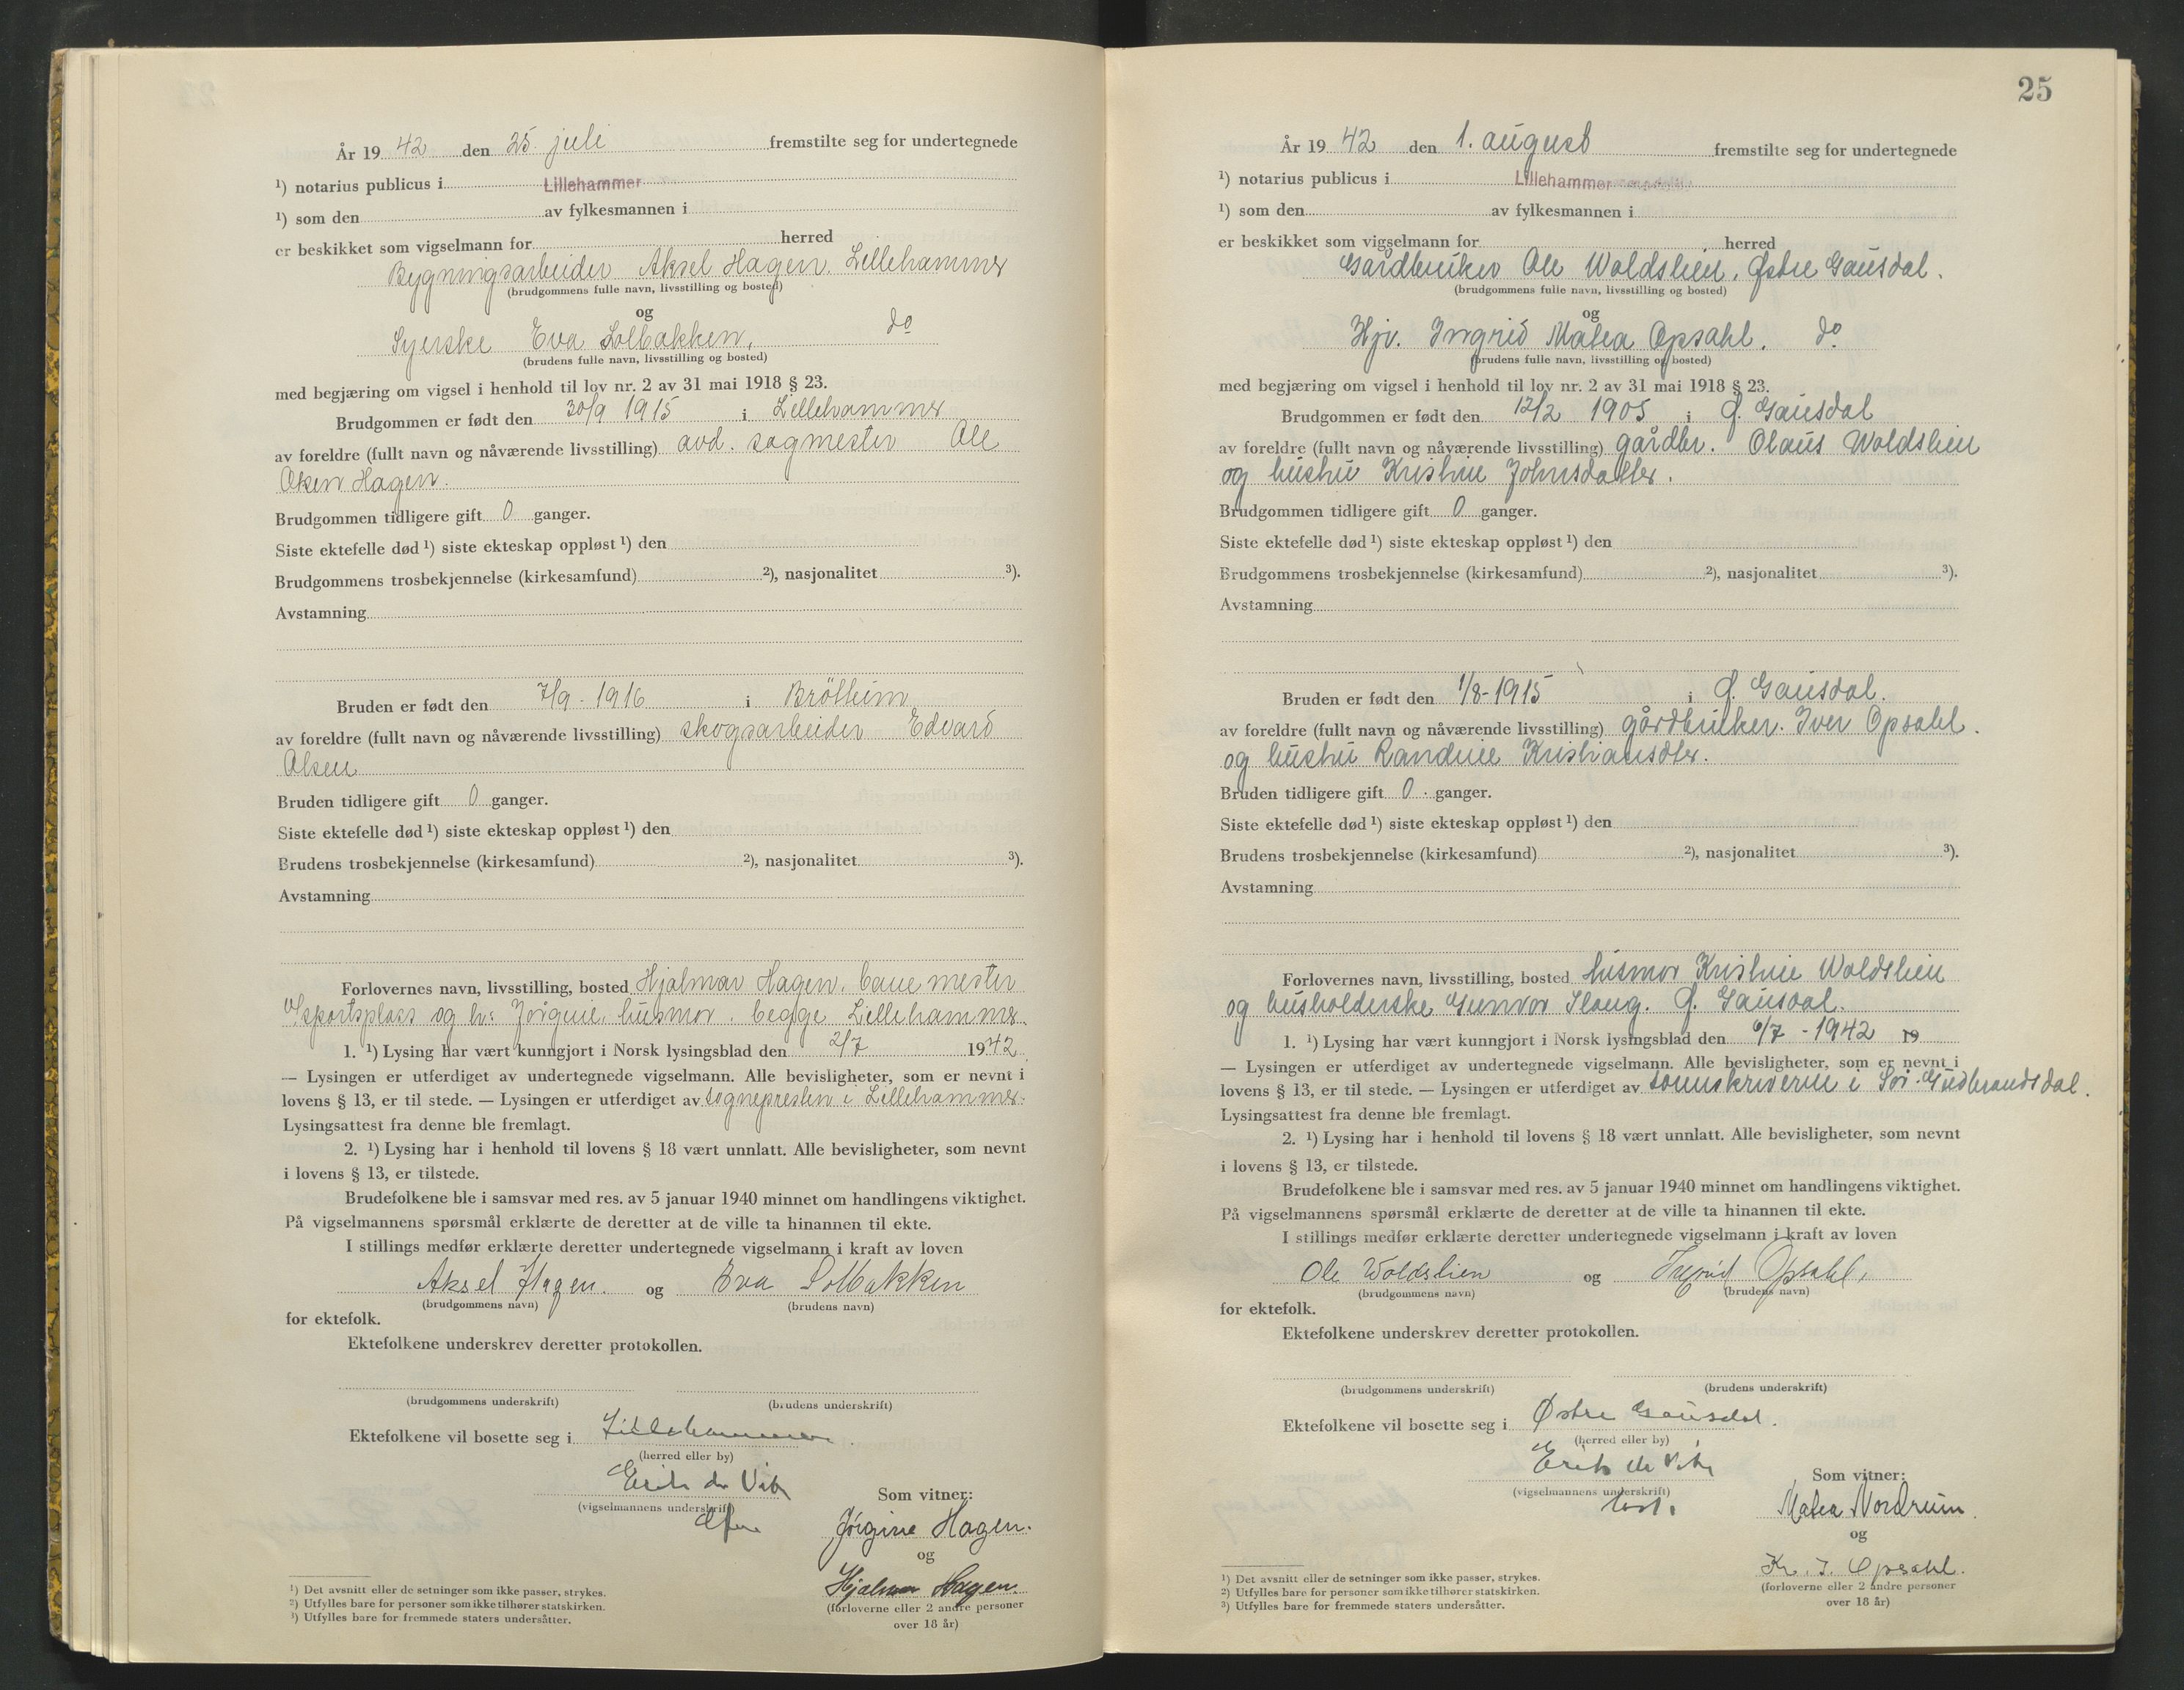 År 19 42 den 25. juli fremstilte seg for undertegnede
¹) notarius publicus i Lillehammer
¹) som den av fylkesmannen i
er beskikket som vigselmann for herred
Bygningsarbeider Aksel Hagen. Lillehammer
(brudgommens fulle navn, livsstilling og bosted)
og
Syerske Eva Solbakken, do
(brudens fulle navn, livsstilling og bosted)
med begjæring om vigsel i henhold til lov nr. 2 av 31 mai 1918 § 23.
Brudgommen er født den 30/9 1915 i Lillehammer
av foreldre (fullt navn og nåværende livsstilling) avd. sagmester Ole
Olsen Hagen.
Brudgommen tidligere gift 0 ganger.
Siste ektefelle død ¹) siste ekteskap oppløst ¹) den
Brudgommens trosbekjennelse (kirkesamfund) ²), nasjonalitet ³).
Avstamning
Bruden er født den 7/9 - 1916 i Bröttum
av foreldre (fullt navn og nåværende livsstilling) skogsarbeider Edvard
Olsen
Bruden tidligere gift 0 ganger.
Siste ektefelle død ¹) siste ekteskap oppløst ¹) den
Brudens trosbekjennelse (kirkesamfund) ²), nasjonalitet ³).
Avstamning
Forlovernes navn, livsstilling, bosted Hjalmar Hagen, banemester
v/sportsplass og h: Jørgine, husmor. begge Lillehammer.
1. ¹) Lysing har vært kunngjort i Norsk lysingsblad den 2/7 1942
— Lysingen er utferdiget av undertegnede vigselmann. Alle bevisligheter, som er nevnt i
lovens § 13, er til stede. — Lysingen er utferdiget av sognepresten i Lillehammer.
Lysingsattest fra denne ble fremlagt.
2. ¹) Lysing har i henhold til lovens § 18 vært unnlatt. Alle bevisligheter, som nevnt
i lovens § 13, er tilstede.
Brudefolkene ble i samsvar med res. av 5 januar 1940 minnet om handlingens viktighet.
På vigselmannens spørsmål erklærte de deretter at de ville ta hinannen til ekte.
I stillings medfør erklærte deretter undertegnede vigselmann i kraft av loven
Aksel Hagen. og Eva Solbakken
(brudgommens navn) (brudens navn)
for ektefolk.
Ektefolkene underskrev deretter protokollen.
(brudgommens underskrift) (brudens underskrift)
Ektefolkene vil bosette seg i Lillehammer.
(herred eller by)
Erik de Vibe
(vigselmannens underskrift)
Som vitner:
Jørgine Hagen.
og
Hjalmar Hagen.
(forloverne eller 2 andre personer
over 18 år)
¹) Det avsnitt eller de setninger som ikke passer, strykes.
²) Utfylles bare for personer som ikke tilhører statskirken.
³) Utfylles bare for fremmede staters undersåtter.
25
År 19 42 den 1. august fremstilte seg for undertegnede
¹) notarius publicus i Lillehammer
¹) som den av fylkesmannen i
er beskikket som vigselmann for herred
Gårdbruker Ole Woldslien, Østre Gausdal.
(brudgommens fulle navn, livsstilling og bosted)
og
Hjv. Ingrid Matea Opsahl. do
(brudens fulle navn, livsstilling og bosted)
med begjæring om vigsel i henhold til lov nr. 2 av 31 mai 1918 § 23.
Brudgommen er født den 12/2 1905 i Ø. Gausdal
av foreldre (fullt navn og nåværende livsstilling) gårdbr. Olaus Woldslien
og hustru Kristine Johnsdatter.
Brudgommen tidligere gift 0 ganger.
Siste ektefelle død ¹) siste ekteskap oppløst ¹) den
Brudgommens trosbekjennelse (kirkesamfund) ²), nasjonalitet ³).
Avstamning
Bruden er født den 1/8 - 1915 i Ø. Gausdal.
av foreldre (fullt navn og nåværende livsstilling) gårdbruker. Iver Opsahl.
og hustru Randine Kristiansdtr.
Bruden tidligere gift 0. ganger.
Siste ektefelle død ¹) siste ekteskap oppløst ¹) den
Brudens trosbekjennelse (kirkesamfund) ²), nasjonalitet ³).
Avstamning
Forlovernes navn, livsstilling, bosted husmor Kristine Woldslien
og husholderske Gunvor Slaug. Ø. Gausdal.
1. ¹) Lysing har vært kunngjort i Norsk lysingsblad den 6/7 - 1942 19
— Lysingen er utferdiget av undertegnede vigselmann. Alle bevisligheter, som er nevnt i
lovens § 13, er til stede. — Lysingen er utferdiget av sorenskriveren i Sør-Gudbrandsdal.
Lysingsattest fra denne ble fremlagt.
2. ¹) Lysing har i henhold til lovens § 18 vært unnlatt. Alle bevisligheter, som nevnt
i lovens § 13, er tilstede.
Brudefolkene ble i samsvar med res. av 5 januar 1940 minnet om handlingens viktighet.
På vigselmannens spørsmål erklærte de deretter at de ville ta hinannen til ekte.
I stillings medfør erklærte deretter undertegnede vigselmann i kraft av loven
Ole Woldslien og Ingrid Opsahl.
(brudgommens navn) (brudens navn)
for ektefolk.
Ektefolkene underskrev deretter protokollen.
(brudgommens underskrift) (brudens underskrift)
Ektefolkene vil bosette seg i Østre Gausdal.
(herred eller by)
Erik de Vibe
(vigselmannens underskrift)
Som vitner:
Matea Nordrum.
og
Kr. I. Opsahl.
(forloverne eller 2 andre personer
over 18 år)
¹) Det avsnitt eller de setninger som ikke passer, strykes.
²) Utfylles bare for personer som ikke tilhører statskirken.
³) Utfylles bare for fremmede staters undersåtter.